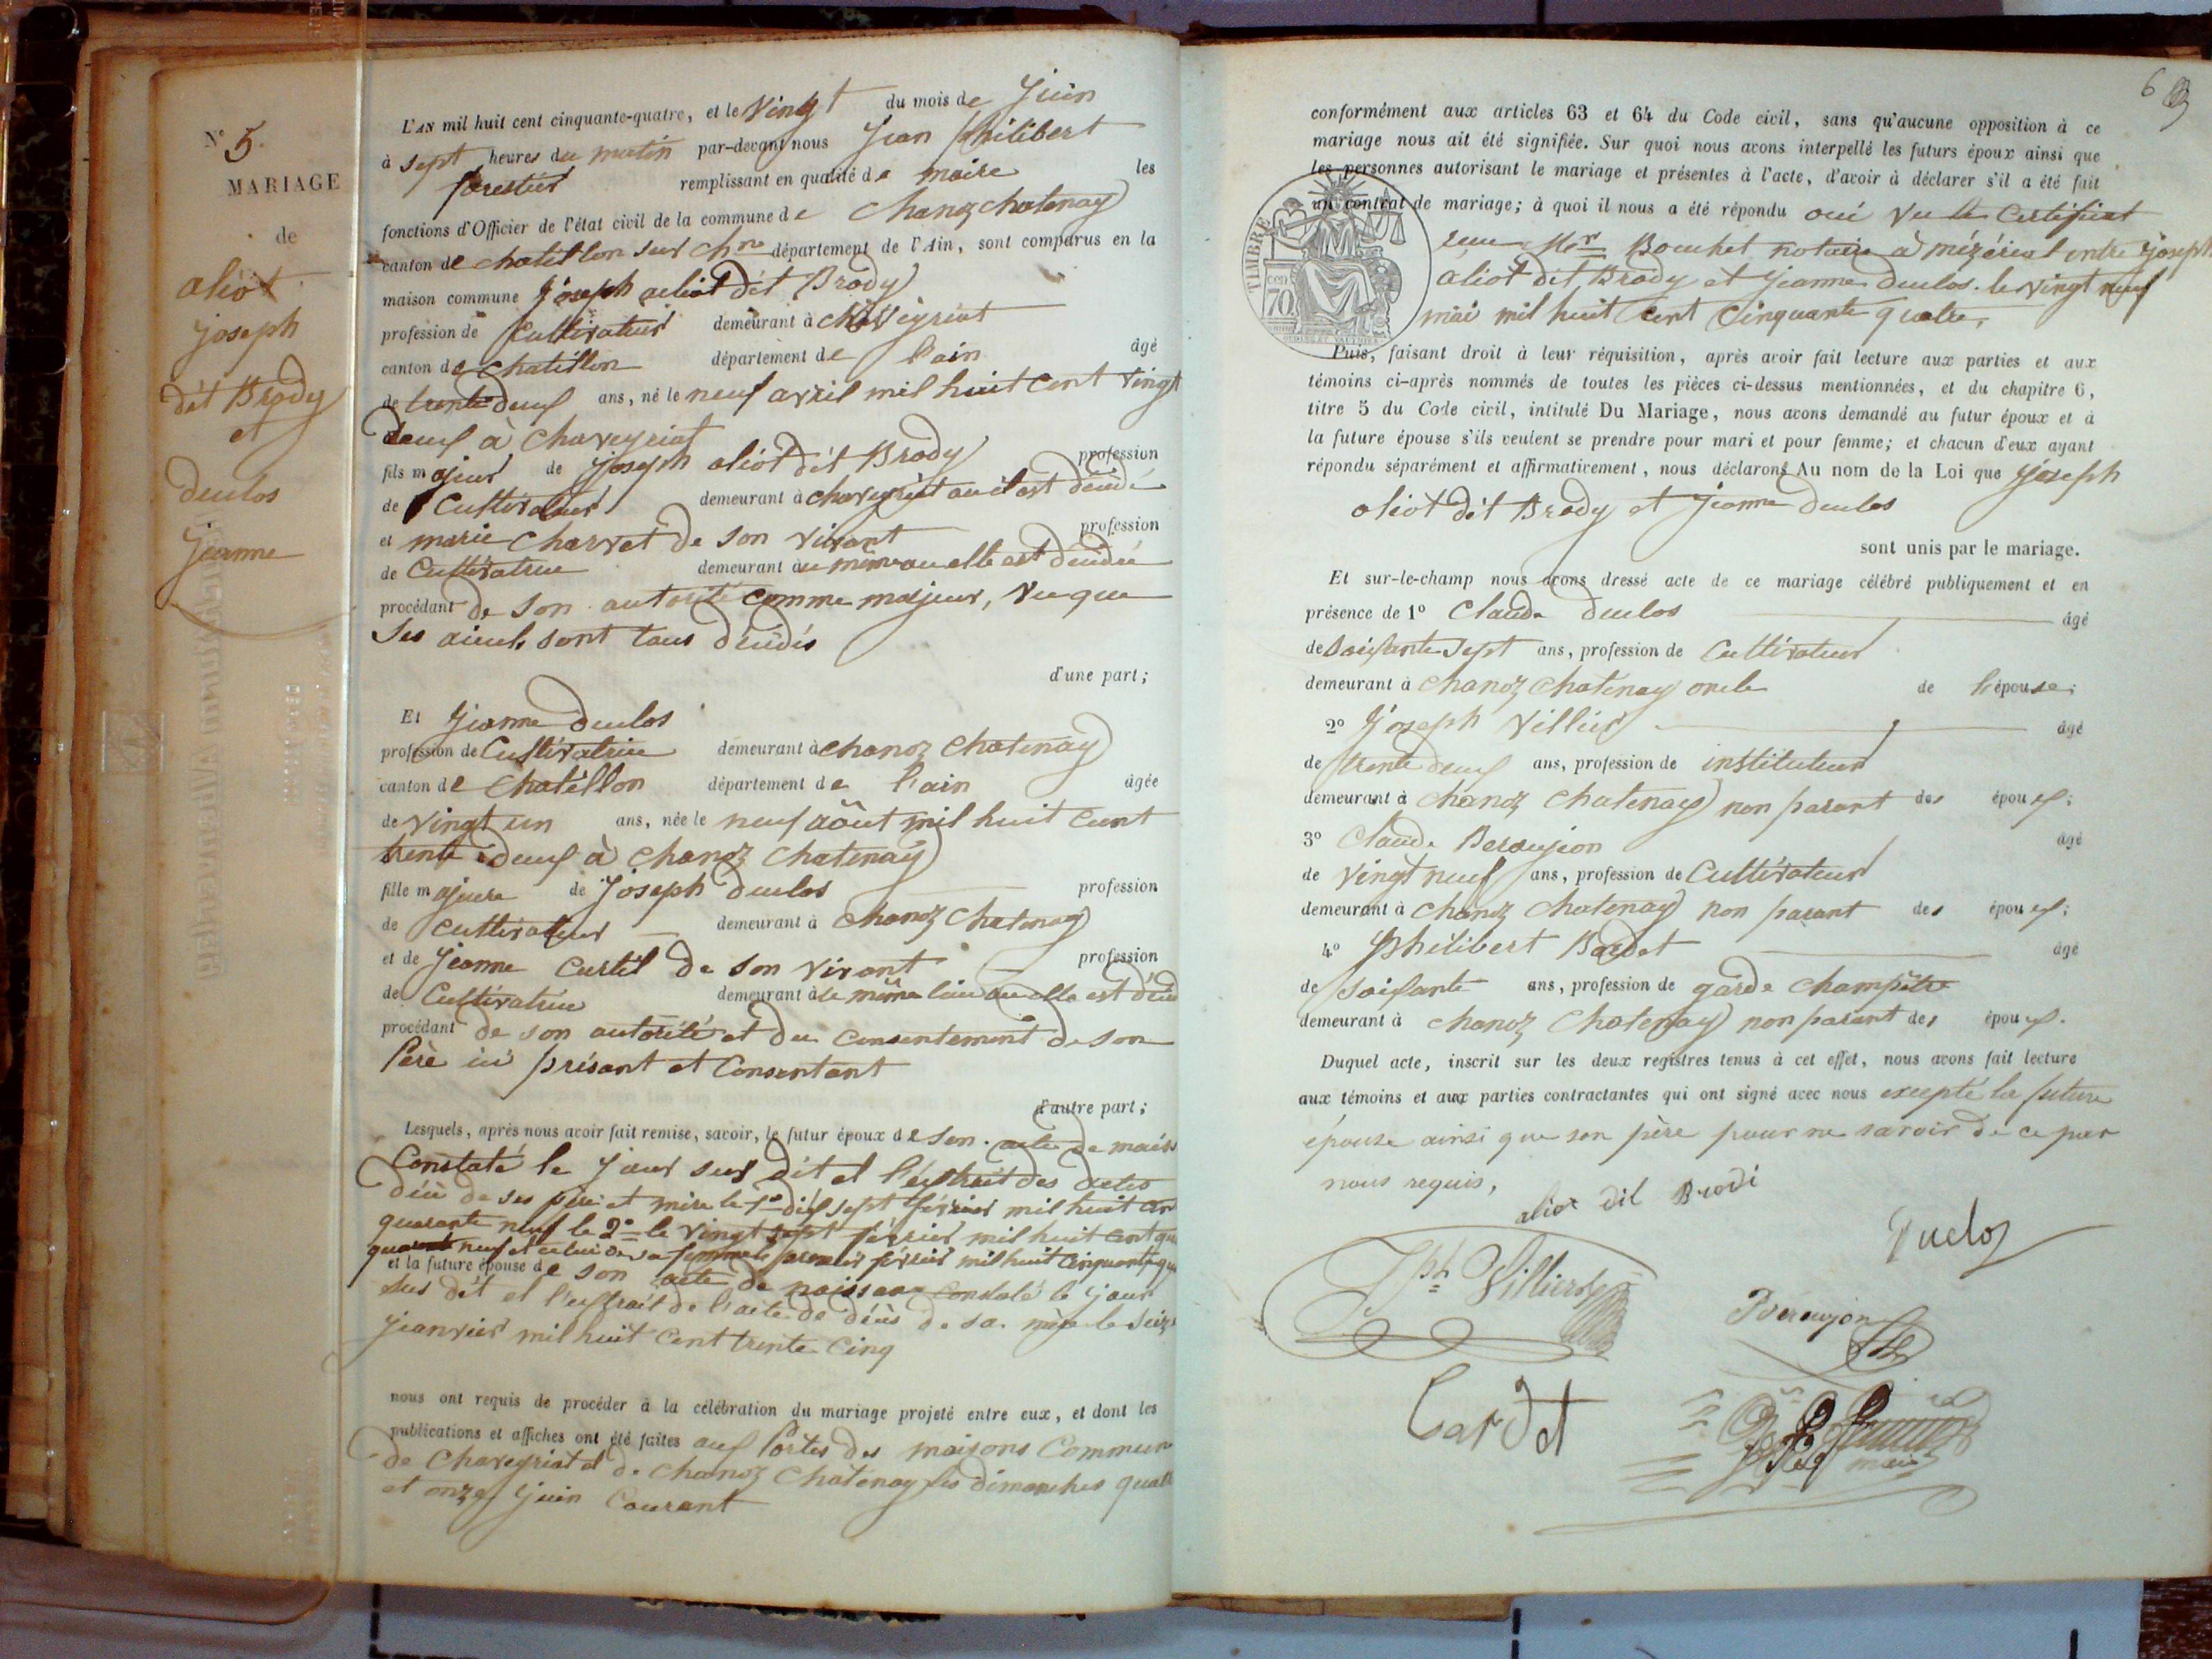 N° 5.
MARIAGE
de
aliot
joseph
dit Brody
et
duclos
jeanne
L'AN mil huit cent cinquante-quatre, et le Vingt du mois de Juin
à sept heures du matin par-devant nous Jean philibert
forestier remplissant en qualité de maire les
fonctions d'Officier de l'état civil de la commune de Chanoz chatenay
canton de chatillon sur Chne département de l'Ain, sont comparus en la
maison commune Joseph aliot dit Brody
profession de Cultivateur demeurant à Chaveyriat
canton de Chatillon département de l'ain âgé
de trente deux ans, né le neuf avril mil huit Cent vingt
deux à Chaveyriat
fils majeur de joseph aliot dit Brody profession
de Cultivateur demeurant à chaveyriat ou il est décédé
et marie Charvet de son vivant profession
de Cultivatrice demeurant au même ou elle est décédée
procédant de son autorité comme majeur, vu que
ses aieuls sont tous décédés
d'une part;
Et Jeanne duclos
profession de Cultivatrice demeurant à Chanoz Chatenay
canton de Chatillon département de l'ain âgée
de vingt un ans, née le neuf août mil huit Cent
trente deux à Chanoz Chatenay
fille majeure de Joseph duclos profession
de Cultivateur demeurant à Chanoz Chatenay
et de Jeanne Curtil de son vivant profession
de Cultivatrice demeurant à le même lieu ou elle est décéd
procédant de son autorité et du Consentement de son
Père ici présant et Consentant
d'autre part;
Lesquels, après nous avoir fait remise, savoir, le futur époux de son acte de naiss
Constaté le jour sus dit et l'extrait des actes
décè de ses père et mère le 1er dix sept février mil huit cen
quarante neuf le 2e le vingt sept février mil huit Cent qua
neuf et celui de sa femme le premier février mil huit Cinquante qu
et la future épouse de son acte de naissance Constaté le jour
sus dit et l'extrait de l'acte de décès de sa mère le seize
Janvier mil huit Cent trente Cinq
nous ont requis de procéder à la célébration du mariage projeté entre eux, et dont les
publications et affiches ont été faites aux Portes des maisons Commun
de Chaveyriat et de Chanoz Chatenay les dimanches quatre
et onze Juin Courant
6
conformément aux articles 63 et 64 du Code civil, sans qu'aucune opposition à ce
mariage nous ait été signifiée. Sur quoi nous avons interpellé les futurs époux ainsi que
les personnes autorisant le mariage et présentes à l'acte, d'avoir à déclarer s'il a été fait
un contrat de mariage; à quoi il nous a été répondu oui vu le Certificat
Mer Bouchet notaire à mézériat entre Joseph
aliot dit Brody et Jeanne duclos. le vingt neuf
mai mil huit Cent Cinquante quatre,
TIMBRE
70
Puis, faisant droit à leur réquisition, après avoir fait lecture aux parties et aux
témoins ci-après nommés de toutes les pièces ci-dessus mentionnées, et du chapitre 6,
titre 5 du Code civil, intitulé Du Mariage, nous avons demandé au futur époux et à
la future épouse s'ils veulent se prendre pour mari et pour femme; et chacun d'eux ayant
répondu séparément et affirmativement, nous déclarons Au nom de la Loi que Joseph
aliot dit Brody et Jeanne duclos
sont unis par le mariage.
Et sur-le-champ nous avons dressé acte de ce mariage célébré publiquement et en
présence de 1° Claude duclos âgé
de soixante sept ans, profession de Cultivateur
demeurant à Chanoz Chatenay oncle de l'épouse;
2° Joseph Villier âgé
de trente deux ans, profession de instituteur
demeurant à Chanoz Chatenay non parant des époux;
3° Claude Beraujon âgé
de vingt neuf ans, profession de Cultivateur
demeurant à Chanoz Chatenay non parant des époux;
4° Philibert Bardet âgé
de soixante ans, profession de garde Champêtre
demeurant à Chanoz Chatenay non parant des époux.
Duquel acte, inscrit sur les deux registres tenus à cet effet, nous avons fait lecture
aux témoins et aux parties contractantes qui ont signé avec nous excepté la future
épouse ainsi que son père pour ne savoir de ce par
nous requis,
aliot dit Brodi
Duclos
Jph Villier
Beraujon
Bardet
maire